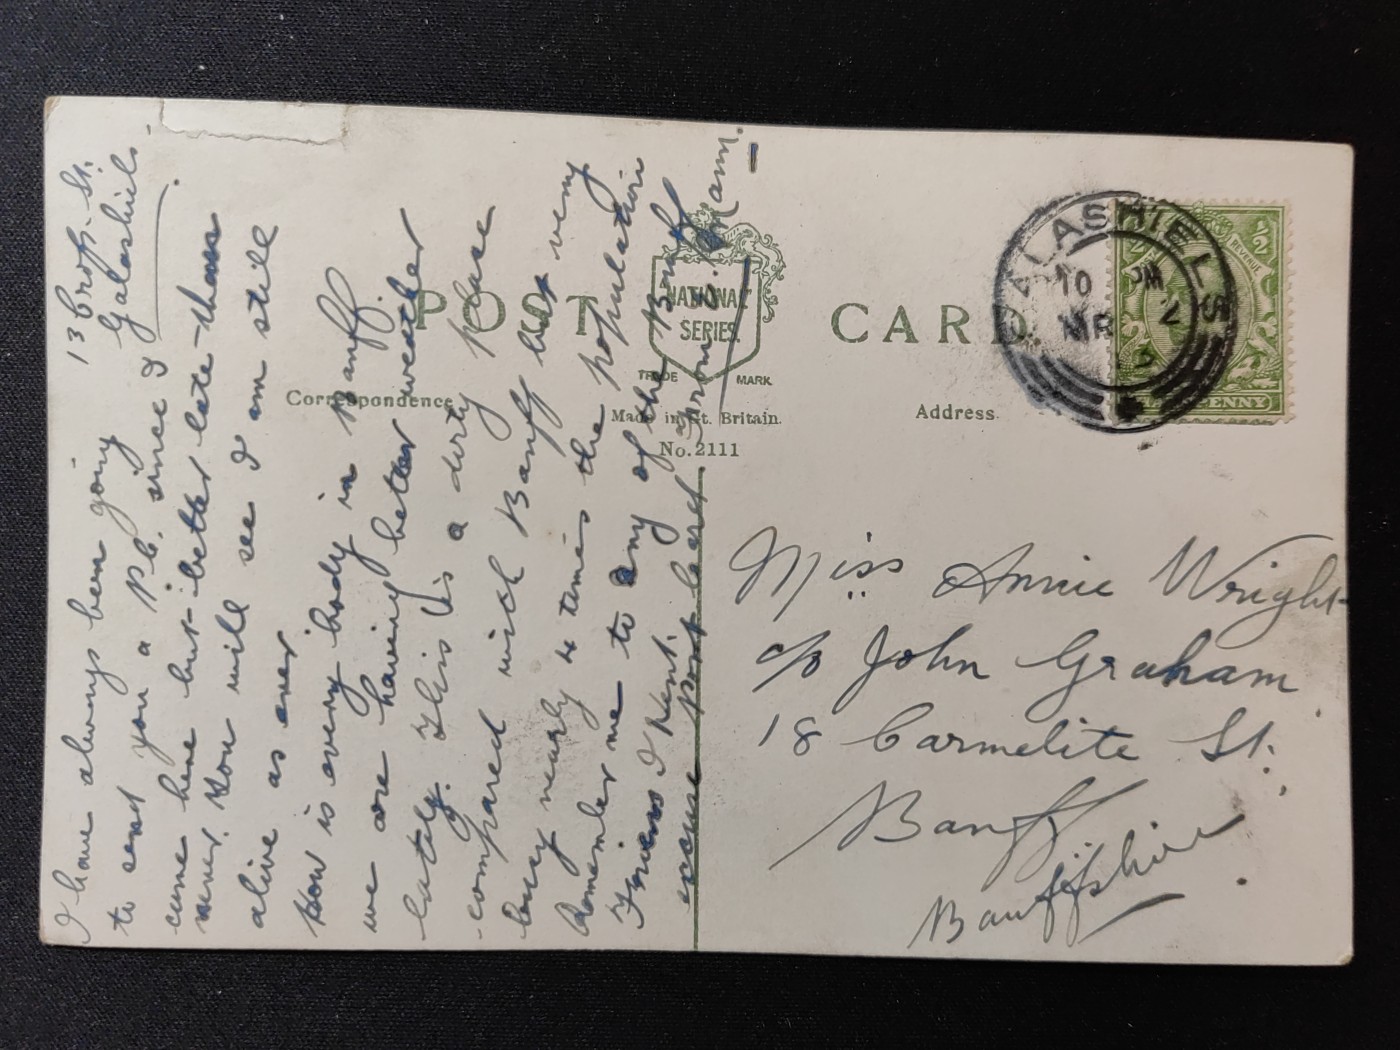 13 Croft St.
Galashiels
I have always been going
to send you a P.C. since I
came here but better late than
never. You will see I am still
alive as ever.
How is every body in Banff.
we are having better weather
lately. This is a dirty place
compared with Banff but very
busy nearly 4 times the population
Remember me to any of the Banff
Friends I Kent.
excuse post card from
POST CARD
NATIONAL
SERIES
TRADE MARK
Correspondence
Made in Gt. Britain.
No. 2111
Address
GALASHIELS
10 PM
MR 2
HALFPENNY
REVENUE
1/2
Miss Annie Wright
c/o John Graham
18 Carmelite St.
Banff
Banffshire